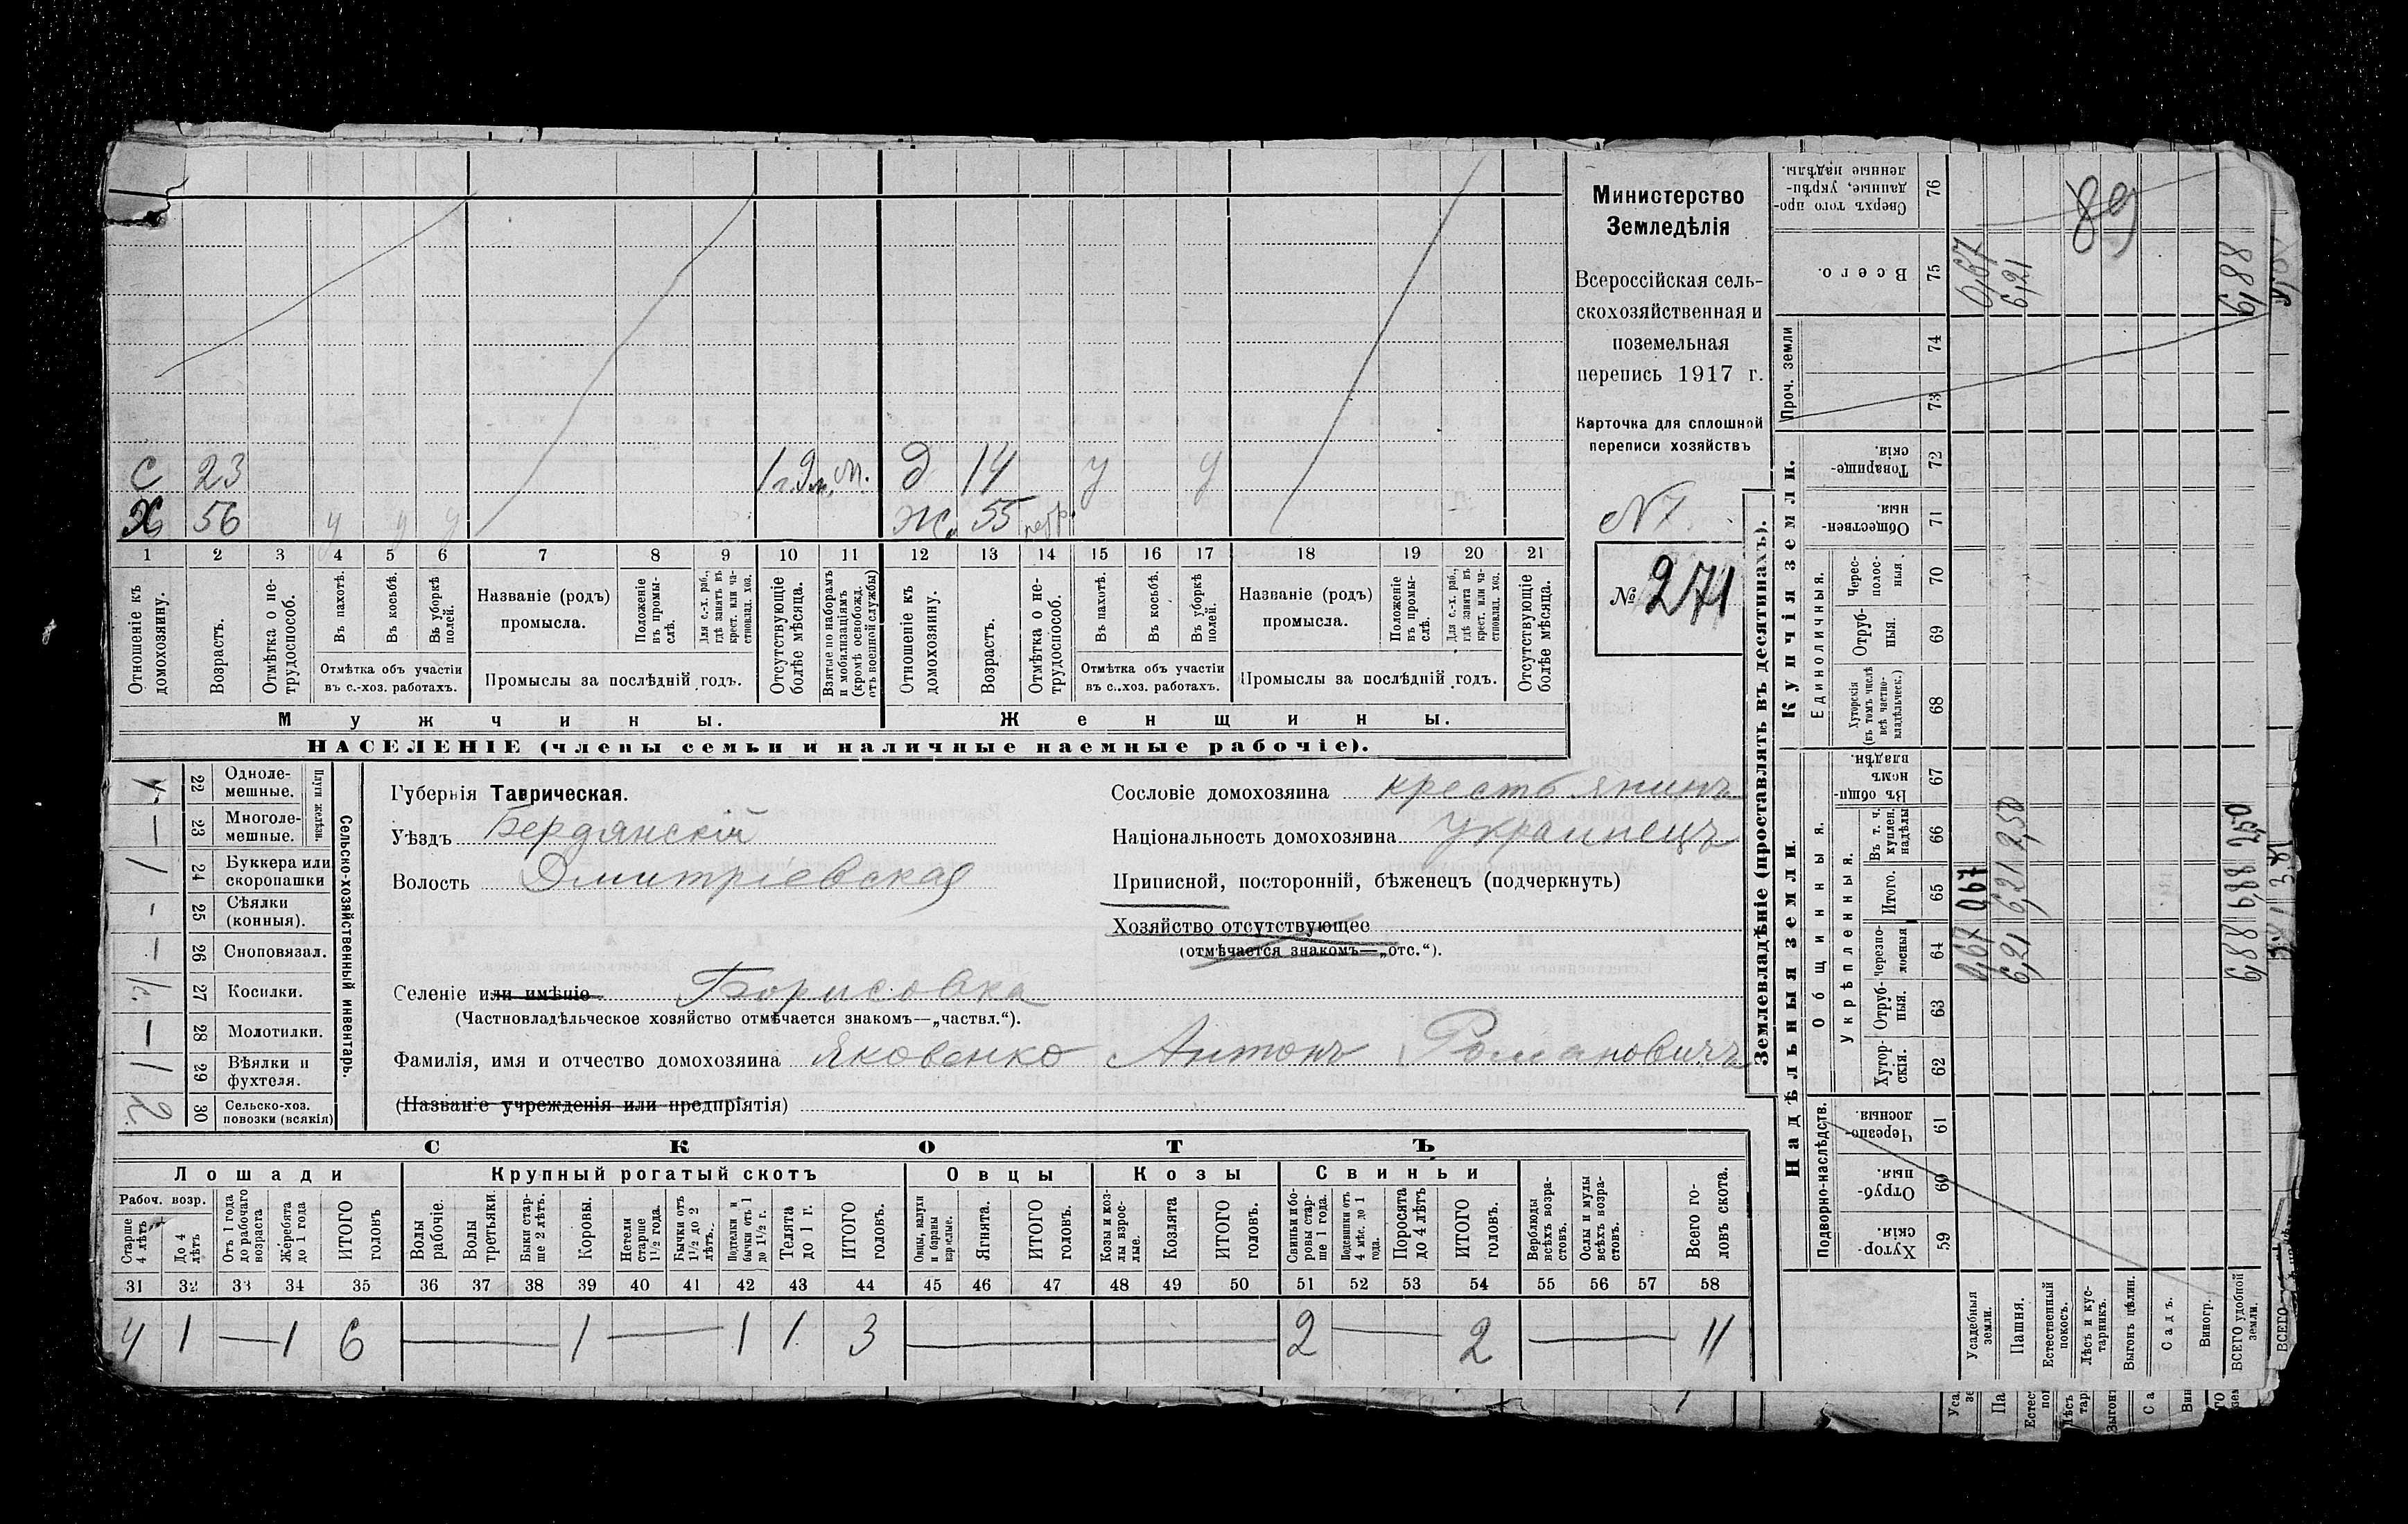 С 23 1 г. 9 м. М. д 14 у у
Х 56 у у у Ж. 55 нетр.
1 2 3 4 5 6 7 8 9 10 11 12 13 14 15 16 17 18 19 20 21
Отношеніе къ домохозяину.
Возрастъ.
Отмѣтка о не-
трудоспособ.
Въ пахотѣ.
Въ косьбѣ.
Въ уборкѣ
полей.
Отмѣтка объ участіи
въ с.-хоз. работахъ.
Названіе (родъ)
промысла.
Положеніе
въ промы-
слѣ.
Для с.-х. раб.,
гдѣ занятъ въ
крест. или ча-
стновлад. хоз.
Промыслы за послѣдній годъ.
Отсутствующіе
болѣе мѣсяца.
Взятые по наборамъ
и мобилизаціямъ
(кромѣ освобожд.
отъ военной службы)
Отношеніе къ
домохозяину.
Возрастъ.
Отмѣтка о не-
трудоспособ.
Въ пахотѣ.
Въ косьбѣ.
Въ уборкѣ
полей.
Отмѣтка объ участіи
въ с.-хоз. работахъ.
Названіе (родъ)
промысла.
Положеніе
въ промы-
слѣ.
Для с.-х. раб.,
гдѣ занята въ
крест. или ча-
стновлад. хоз.
Промыслы за послѣдній годъ.
Отсутствующіе
болѣе мѣсяца.
Мужчины. Женщины.
НАСЕЛЕНІЕ (члены семьи и наличные наемные рабочіе).
Министерство
Земледѣлія
Всероссійская сель-
скохозяйственная и
поземельная
перепись 1917 г.
Карточка для сплошной
переписи хозяйствъ
N 7.
№ 271
Сельско-хозяйственный инвентарь.
Плуги желѣзн.
22 Одноле-
мешные.
— 23 Многоле-
мешные.
1 24 Буккера или
скоропашки
- 25 Сѣялки
(конныя).
- 26 Сноповязал.
27 Косилки.
— 28 Молотилки.
1 29 Вѣялки и
фухтеля.
2 30 Сельско-хоз.
повозки (всякія)
Губернія Таврическая.
Уѣздъ Бердянскій
Волость Дмитріевская
Селеніе или имѣніе Борисовка
(Частновладѣльческое хозяйство отмѣчается знакомъ—„частвл.“).
Фамилія, имя и отчество домохозяина Яковенко Антонъ Романовичъ
(Названіе учрежденія или предпріятія)
Сословіе домохозяина крестьянинъ
Національность домохозяина Украинецъ
Приписной, посторонній, бѣженецъ (подчеркнуть)
Хозяйство отсутствующее
(отмѣчается знакомъ—„отс.“).
СКОТЪ
Лошади Крупный рогатый скотъ Овцы Козы Свиньи
Рабоч. возр.
Старше
4 лѣтъ
До 4
лѣтъ
Отъ 1 года
до рабочаго
возраста
Жеребята
до 1 года
ИТОГО
головъ
Волы
рабочіе.
Волы
третьяки.
Быки стар-
ше 2 лѣтъ.
Коровы.
Нетели
старше
1½ года.
Бычки отъ
1½ до 2
лѣтъ.
Подтелки и
бычки отъ 1
до 1½ г.
Телята
до 1 г.
ИТОГО
головъ.
Овцы, валухи
и бараны
взрослые.
Ягнята.
ИТОГО
головъ.
Козы и коз-
лы взрос-
лые.
Козлята
ИТОГО
головъ.
Свиньи и бо-
ровы стар-
ше 1 года.
Подсвинки отъ
4 мѣс. до 1
года.
Поросята
до 4 лѣтъ
ИТОГО
головъ.
Верблюды
всѣхъ возра-
стовъ.
Ослы и мулы
всѣхъ возра-
стовъ.
Всего го-
ловъ скота.
31 32 33 34 35 36 37 38 39 40 41 42 43 44 45 46 47 48 49 50 51 52 53 54 55 56 57 58
4 1 — 1 6 — 1 — 1 1 3 — 2 — 2 — 11
Землевладѣніе (проставлять въ десятинахъ).
Купчія земли.
Сверхъ того про-
данные, укрѣп-
ленные надѣлы.
76
Всего. 75 0,67 6,21 6,88
89
Проч. земли 74
73
Товарище-
скія. 72
Обществен-
ныя. 71
Единоличныя.
Черес-
полос-
ныя. 70
Отруб-
ныя. 69
Хуторскія
(въ томъ числѣ
всѣ частно-
владѣльческ.) 68
Надѣльныя земли.
Общинныя.
Укрѣпленныя.
Въ общи-
номъ
владѣн. 67
Въ т. ч.
куплен.
надѣлы 66 2,50 2,50
Итого. 65 0,67 6,21 6,88
Черезпо-
лосныя 64 0,67 6,21 6,88
Отруб-
ныя. 63
Хутор-
скія. 62
Подворно-наслѣдств.
Черезпо-
лосныя. 61
Отруб-
ныя. 60
Хутор-
скія. 59
Усадебныя
земли.
Пашня.
Естественный
покосъ.
Лѣсъ и кус-
тарникъ.
Выгонъ цѣлин.
Садъ.
Виногр.
ВСЕГО удобной
земли.
ВСЕГО